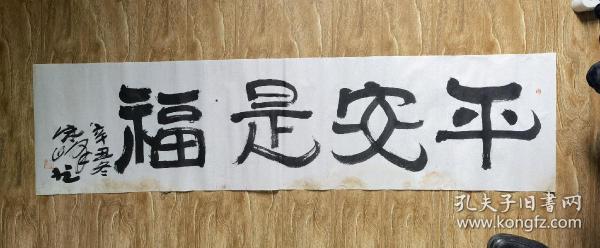 平安是福
辛丑冬
孔夫子旧书网
www.kongfz.com